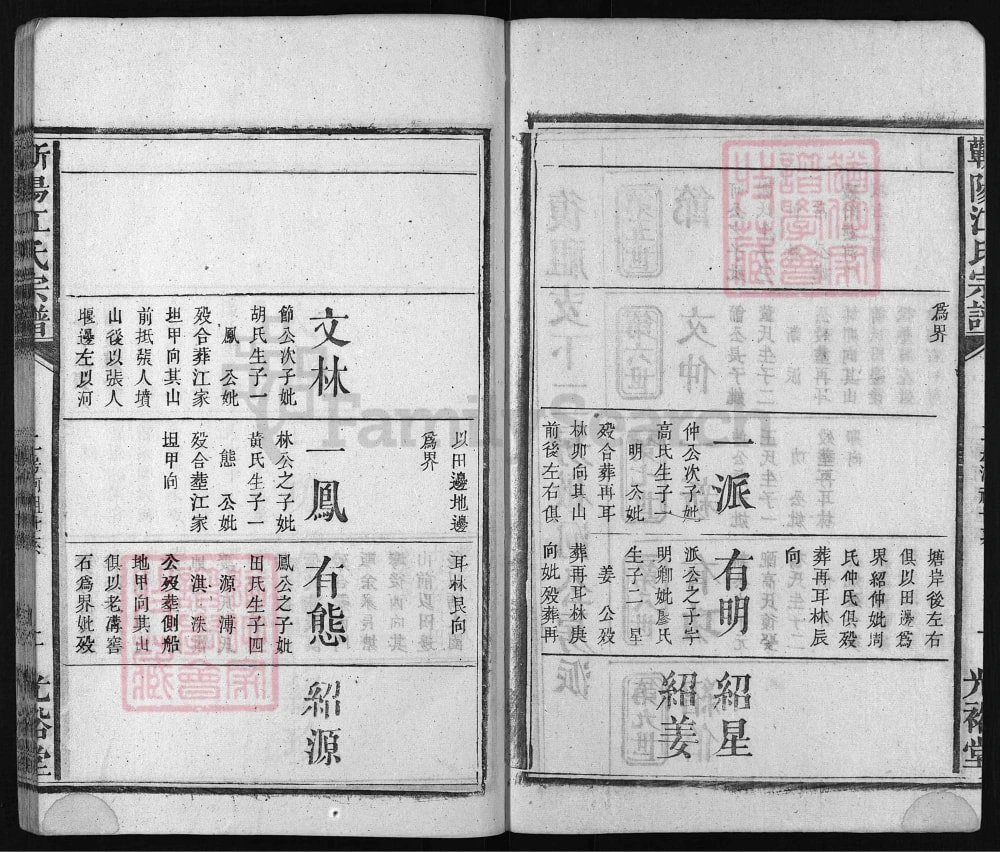 蘄陽江氏宗譜
光裕堂
為界
一派
仲公次子妣
高氏生子一
明 公妣
歿合葬再耳
林卯向其山
前後左右俱
塘岸後左右
俱以田邊為
界紹仲妣周
氏仲氏俱歿
葬再耳林辰
向
有明
派公之子字
明卿妣廖氏
生子二 星
姜 公歿
葬再耳林庚
向妣歿葬再
紹星
紹姜
文林
節公次子妣
胡氏生子一
鳳 公妣
歿合葬江家
坦甲向其山
前抵張人墳
山後以張人
堰邊左以河
以田邊地邊
為界
一鳳
林公之子妣
黃氏生子一
態 公妣
歿合塟江家
坦甲向
耳林艮向
有態
鳳公之子妣
田氏生子四
源 溥
淇 洪
公歿葬側船
地甲向其山
俱以老溝窖
石為界妣歿
紹源
蘄陽江氏宗譜
光裕堂
FamilySearch